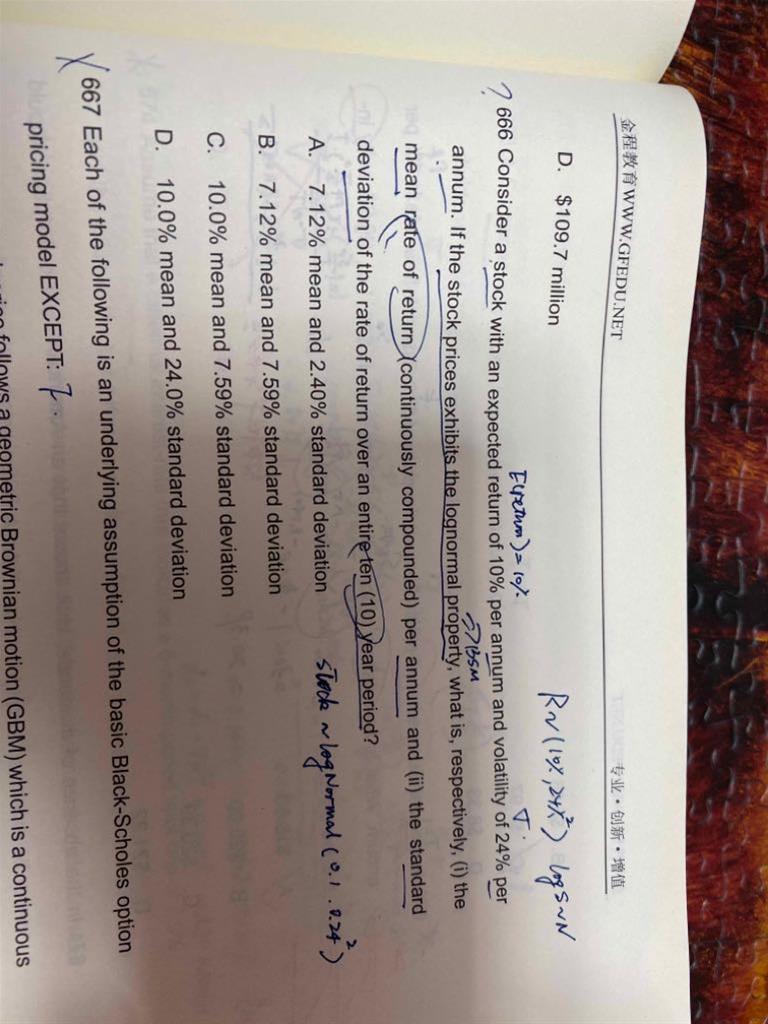 金程教育 WWW.GFEDU.NET
专业·创新·增值
D. $109.7 million
R~(10%, 24%²) log S~N
E(return) = 10%
σ
? 666 Consider a stock with an expected return of 10% per annum and volatility of 24% per
annum. If the stock prices exhibits the lognormal property, what is, respectively, (i) the
→BSM
mean rate of return (continuously compounded) per annum and (ii) the standard
deviation of the rate of return over an entire ten (10) year period?
stock ~ log Normal (0.1, 0.24²)
A. 7.12% mean and 2.40% standard deviation
B. 7.12% mean and 7.59% standard deviation
C. 10.0% mean and 7.59% standard deviation
D. 10.0% mean and 24.0% standard deviation
667 Each of the following is an underlying assumption of the basic Black-Scholes option
pricing model EXCEPT: ?
follows a geometric Brownian motion (GBM) which is a continuous